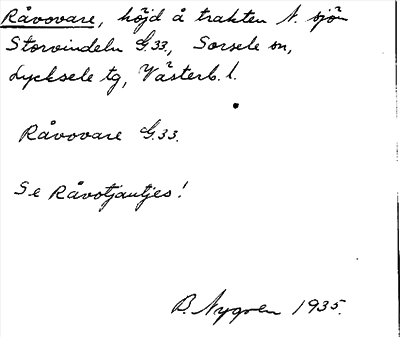 Råvovare, höjd å trakten N. sjön
Storvindeln G.33., Sorsele sn,
Lycksele tg, Västerb. l.
Råvovare G.33.
Se Råvotjautjes!
B. Nygren 1935.